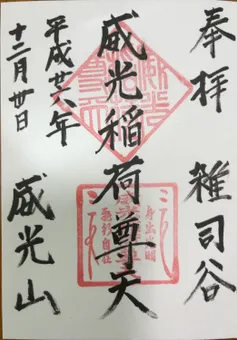 奉拝 雑司谷
威光稲荷尊天
平成廿六年
十二月廿日 威光山